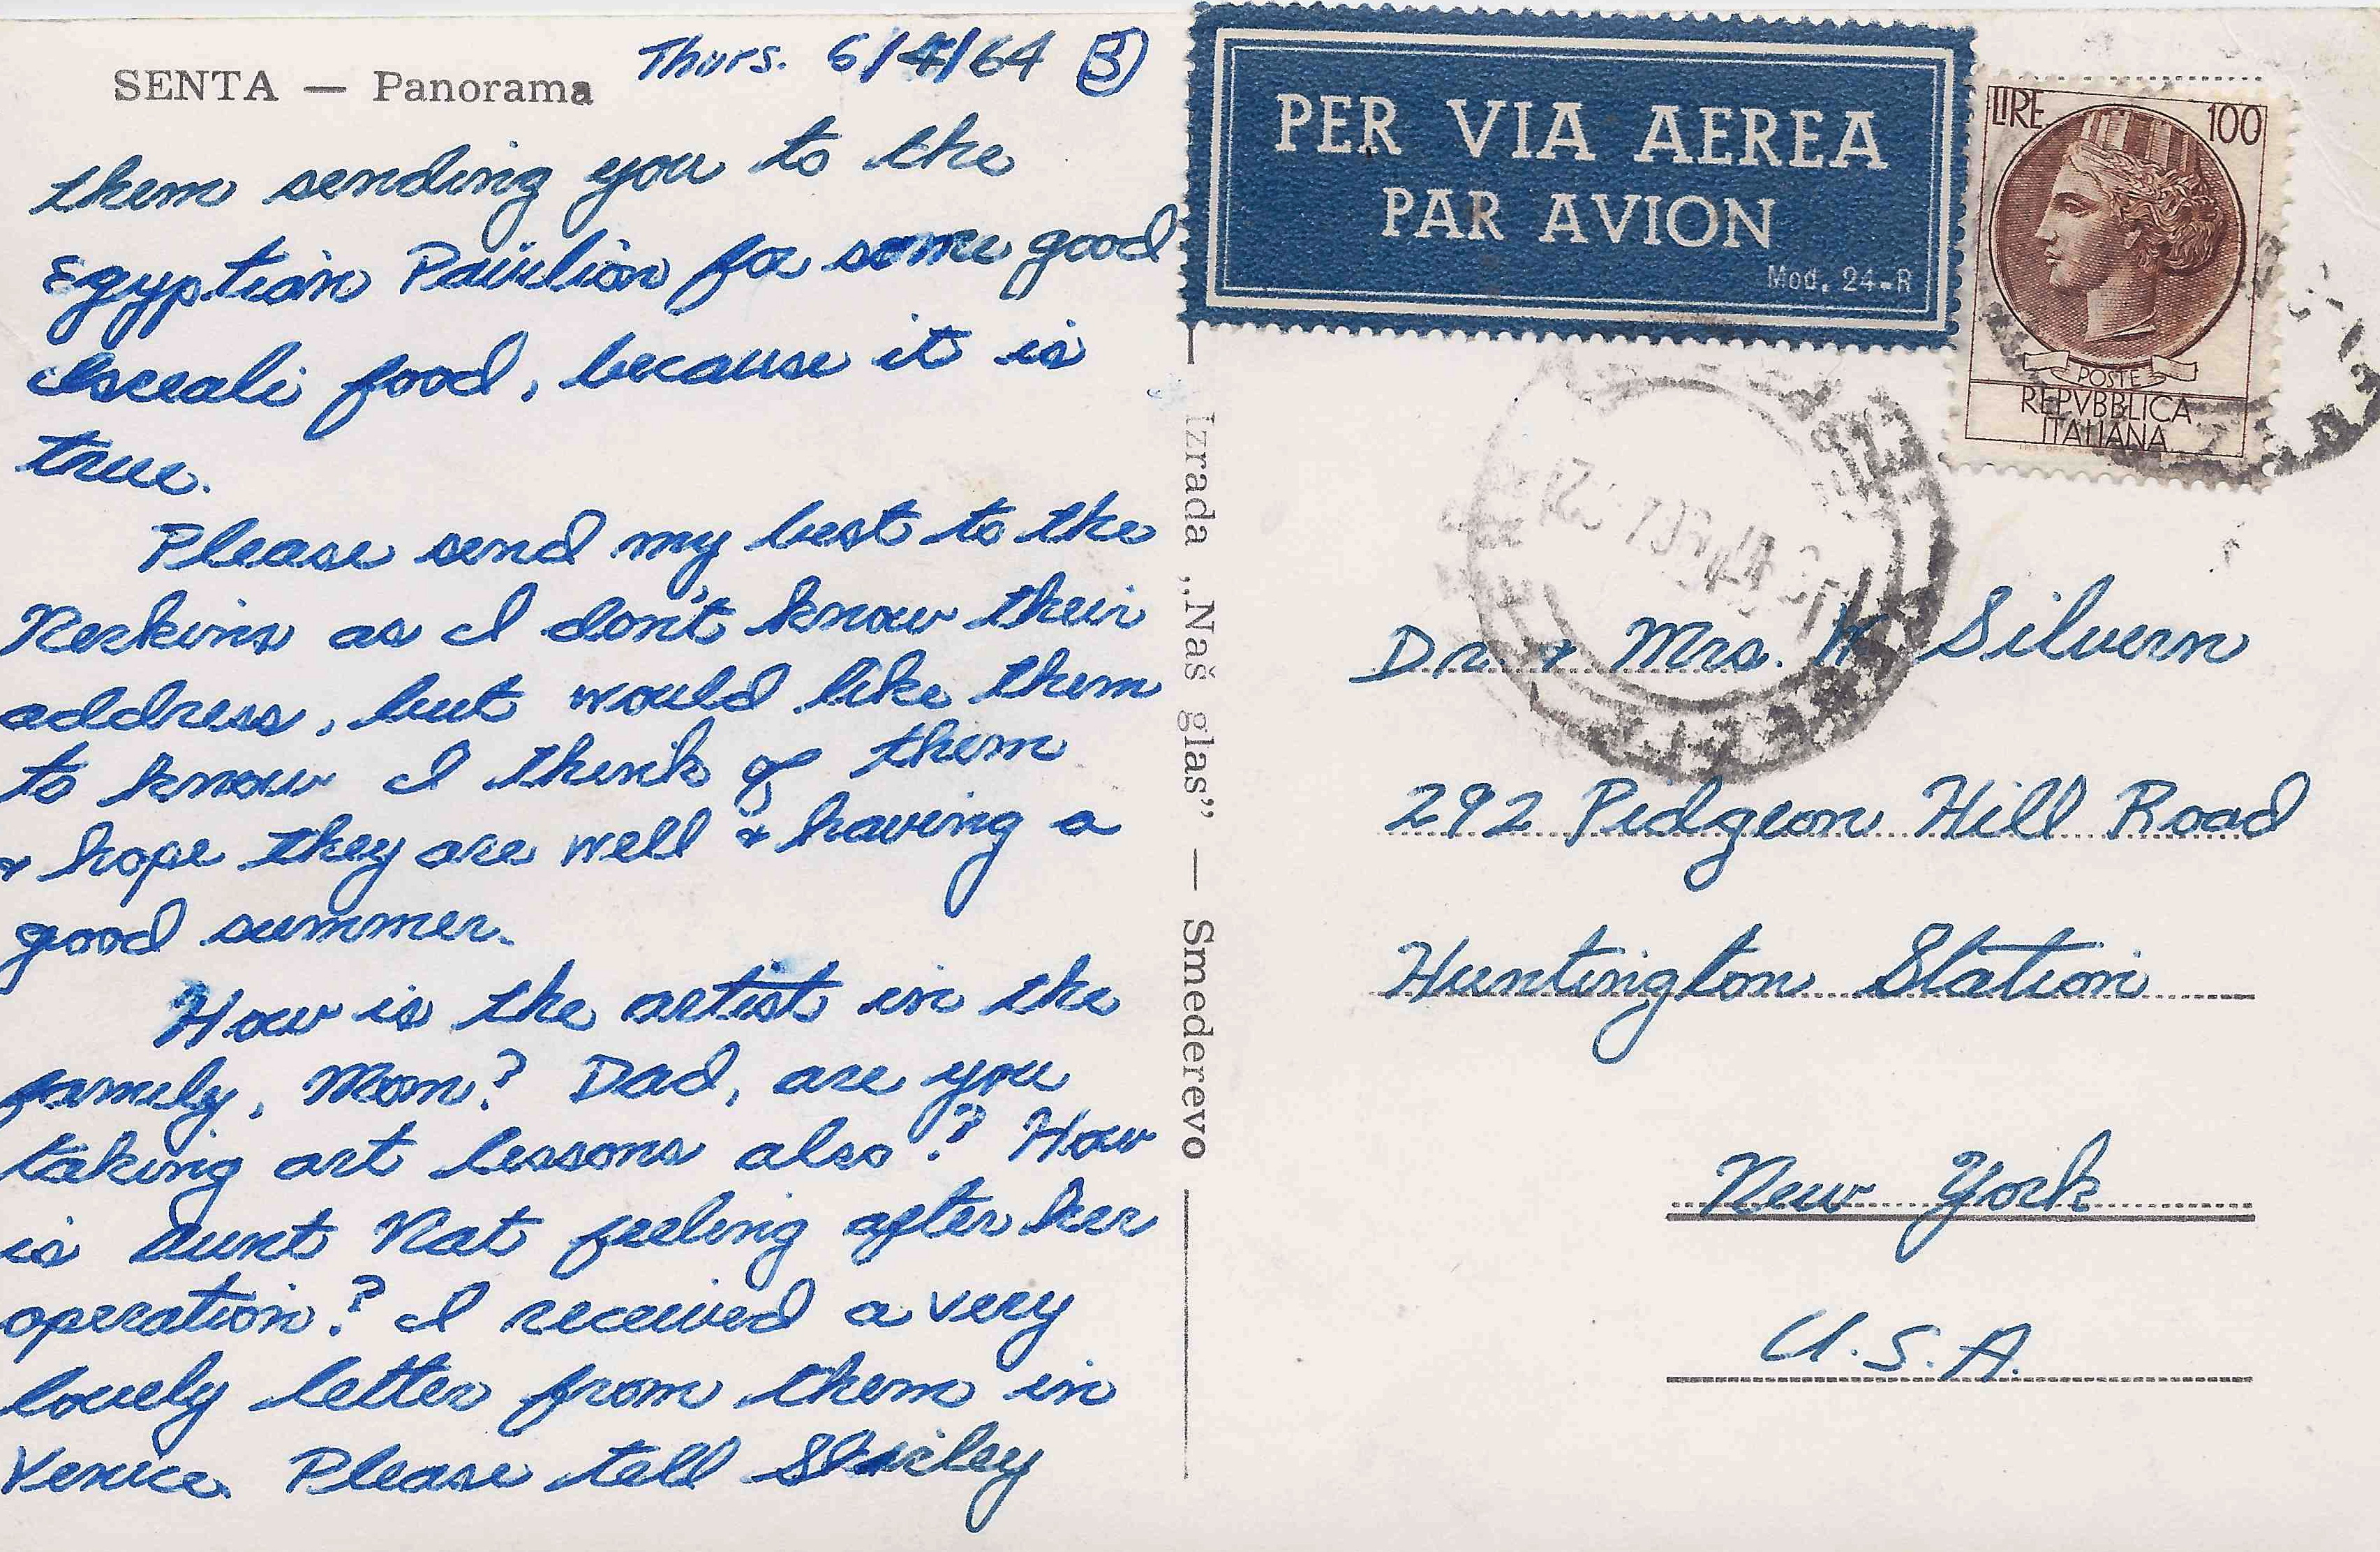 SENTA — Panorama
Thurs. 6/4/64 3
them sending you to the
Egyptian Pavilion for some good
Isreali food, because it is
true.
Please send my best to the
Reskins as I don't know their
address, but would like them
to know I think of them
& hope they are well & having a
good summer.
How is the artist in the
family, Mom? Dad, are you
taking art lessons also? How
is Aunt Nat feeling after her
operation? I received a very
lovely letter from them in
Venice. Please tell Shirley
Izrada „Naš glas” — Smederevo
PER VIA AEREA
PAR AVION
Mod. 24-R
LIRE 100
POSTE
REPVBBLICA
ITALIANA
Dr. & Mrs. W. Silvern
292 Pidgeon Hill Road
Huntington Station
New York
U.S.A.